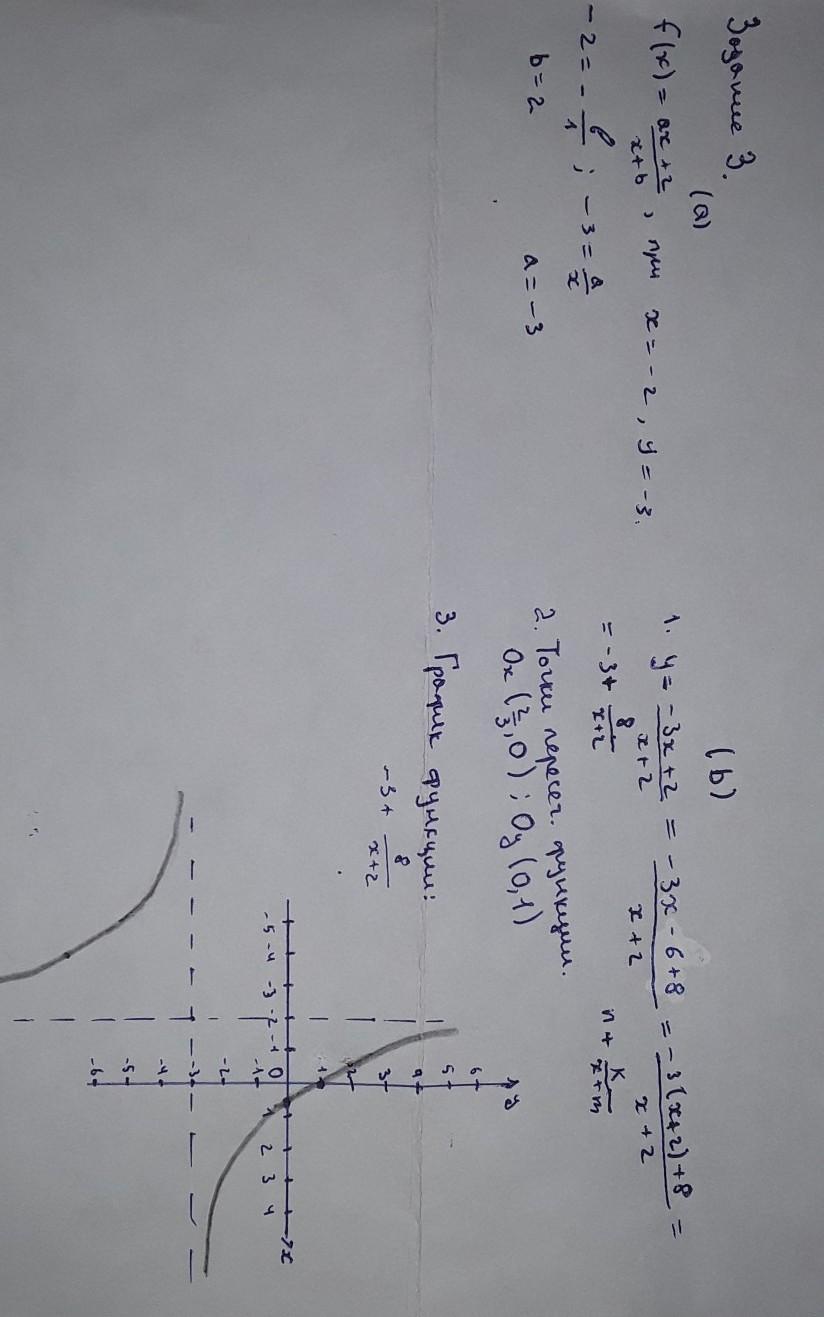 Задание 3.
(a)
f(x) = ax+2/x+b, при x = -2, y = -3.
-2 = - b/1 ; -3 = a/x
b = 2 a = -3
(b)
1. y = -3x+2/x+2 = -3x-6+8/x+2 = -3(x+2)+8/x+2 =
= -3 + 8/x+2 n + k/x+m
2. Точки пересеч. функции.
Ox (2/3, 0) ; Oy (0, 1)
3. График функции:
-3 + 8/x+2
y
6
5
4
3
2
1
-5 -4 -3 -2 -1 0 1 2 3 4 x
-1
-2
-3
-4
-5
-6